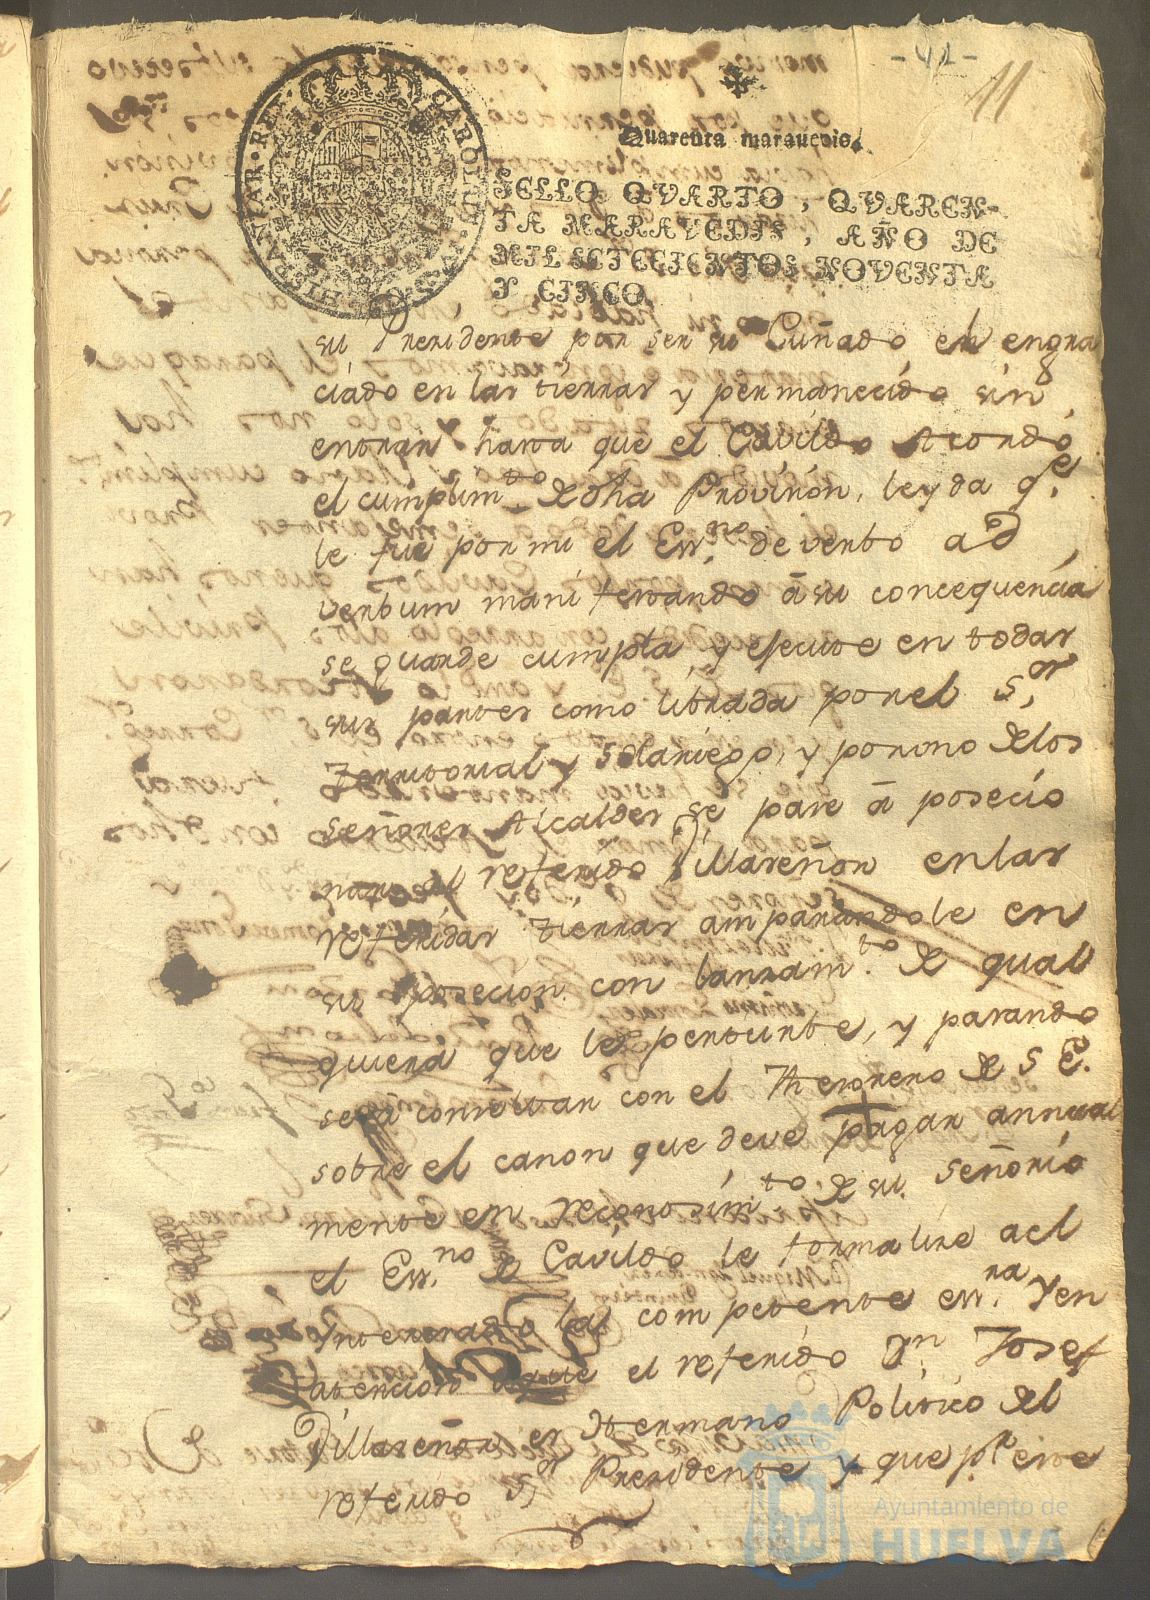 - 41 -
11
Quarenta marauedis.
SELLO QVARTO, QVAREN-
TA MARAVEDIS, AÑO DE
MIL SETECIENTOS NOVENTA
Y CINCO.
su Presidente por ser su Cuñado el engra
ciado en las tierras y permanecido sin
entrar hasta que el Cavildo Acordó
el cumplim.to de dha Provision, leyda q.e
le fue por mi el Ess.no de verbo ad
verbum manifestando â su concequencia
se guarde cumpla, y efecute en todas
sus partes como librada por el S.or
Territorial y Solariego, y por uno de los
señores Alcaldes se pase â posecio
nar al referido Villaseñor en las
referidas tierras amparandole en
su posecion con lanzam.to de qual
quiera que le perturbe, y pasando
se a con el Thesorero de S E.
sobre el canon que deve pagar annual
mente en reconosim.to de su señorio
el Ess.no de Cavildo le formalize al
Interesado la competente ess.ra Y en
atencion a que el referido Dn Josef
Villaseñor es Hermano Politico del
referido S.or Presidente y que p.r este
Ayuntamiento de
HUELVA